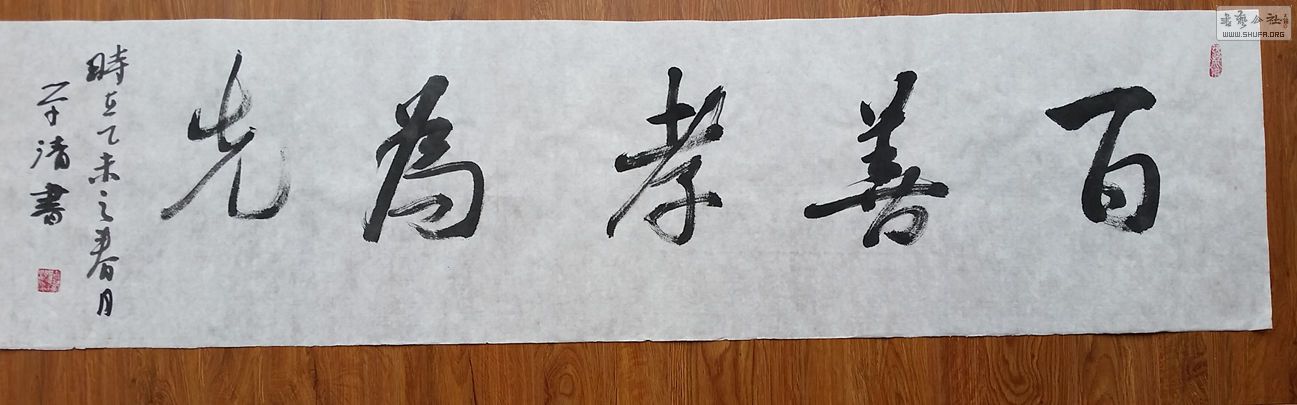 百善孝為先
時在乙未之春月
平清書
書藝公社
WWW.SHUFA.ORG